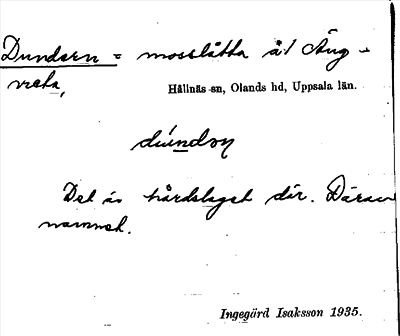 Dundern = mosslåtta åt Äng-
vreta,
Hållnäs sn, Olands hd, Uppsala län.
dúndon
Det är hårdslaget där. Därav
namnet.
Ingegärd Isaksson 1935.